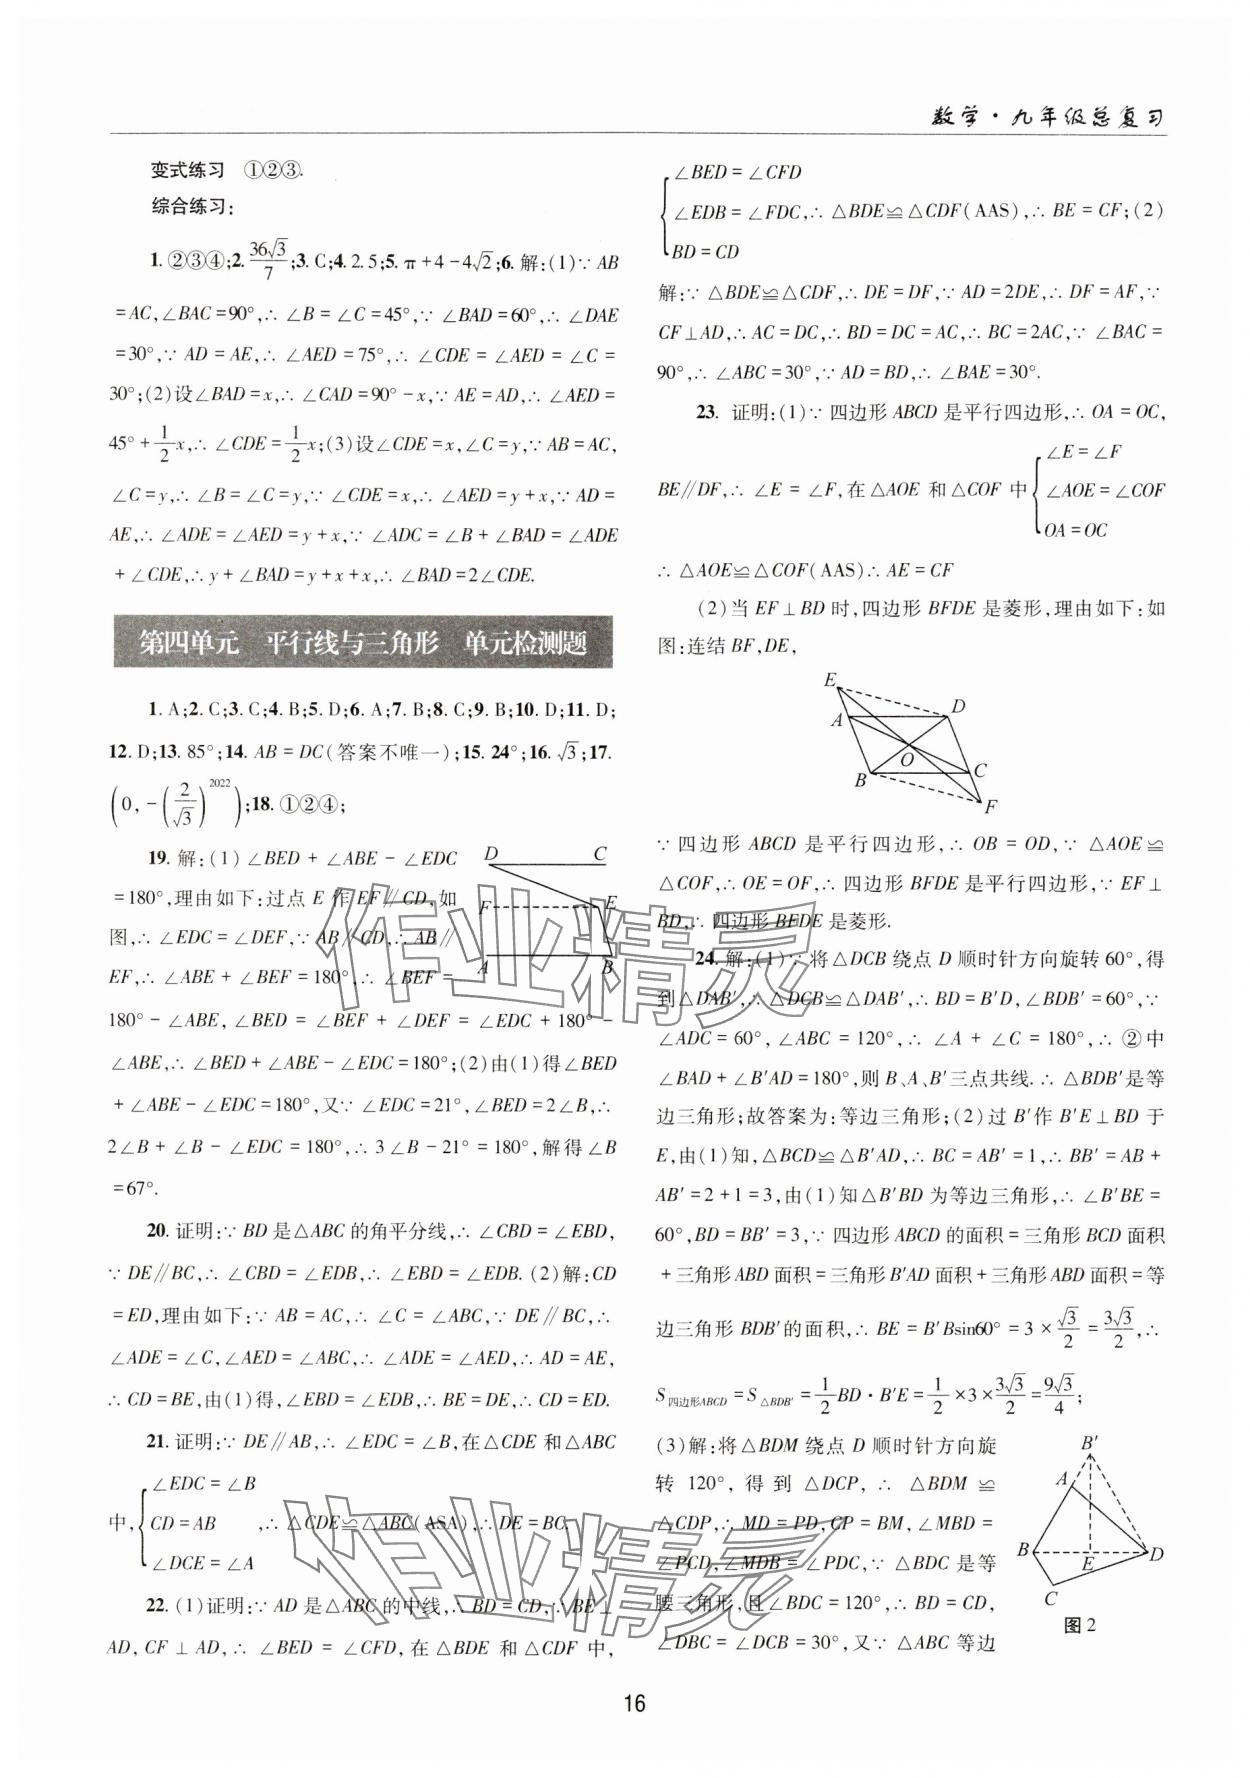 数学·九年级总复习
变式练习　①②③.
综合练习：
1. ②③④;2. 36√3/7;3. C;4. 2. 5;5. π+4-4√2;6. 解:(1)∵ AB
=AC,∠BAC=90°,∴ ∠B=∠C=45°,∵ ∠BAD=60°,∴ ∠DAE
=30°,∵ AD=AE,∴ ∠AED=75°,∴ ∠CDE=∠AED=∠C=
30°;(2)设∠BAD=x,∴ ∠CAD=90°-x,∵ AE=AD,∴ ∠AED=
45°+1/2x,∴ ∠CDE=1/2x;(3)设∠CDE=x,∠C=y,∵ AB=AC,
∠C=y,∴ ∠B=∠C=y,∵ ∠CDE=x,∴ ∠AED=y+x,∵ AD=
AE,∴ ∠ADE=∠AED=y+x,∵ ∠ADC=∠B+∠BAD=∠ADE
+∠CDE,∴ y+∠BAD=y+x+x,∴ ∠BAD=2∠CDE.
第四单元　平行线与三角形　单元检测题
1. A;2. C;3. C;4. B;5. D;6. A;7. B;8. C;9. B;10. D;11. D;
12. D;13. 85°;14. AB=DC(答案不唯一);15. 24°;16. √3;17.
(0,-(2/√3)^2022);18. ①②④;
19. 解:(1)∠BED+∠ABE-∠EDC
=180°,理由如下:过点 E 作 EF∥CD,如
图,∴ ∠EDC=∠DEF,∵ AB∥CD,∴ AB∥
EF,∴ ∠ABE+∠BEF=180°,∴ ∠BEF=
180°-∠ABE,∠BED=∠BEF+∠DEF=∠EDC+180°-
∠ABE,∴ ∠BED+∠ABE-∠EDC=180°;(2)由(1)得∠BED
+∠ABE-∠EDC=180°,又∵ ∠EDC=21°,∠BED=2∠B,∴
2∠B+∠B-∠EDC=180°,∴ 3∠B-21°=180°,解得∠B
=67°.
D C
F E
A B
20. 证明:∵ BD 是△ABC 的角平分线,∴ ∠CBD=∠EBD,
∵ DE∥BC,∴ ∠CBD=∠EDB,∴ ∠EBD=∠EDB. (2)解:CD
=ED,理由如下:∵ AB=AC,∴ ∠C=∠ABC,∵ DE∥BC,∴
∠ADE=∠C,∠AED=∠ABC,∴ ∠ADE=∠AED,∴ AD=AE,
∴ CD=BE,由(1)得,∠EBD=∠EDB,∴ BE=DE,∴ CD=ED.
21. 证明:∵ DE∥AB,∴ ∠EDC=∠B,在△CDE 和△ABC
∠EDC=∠B
中,{CD=AB ,∴ △CDE≌△ABC(ASA),∴ DE=BC.
∠DCE=∠A
22. (1)证明:∵ AD 是△ABC 的中线,∴ BD=CD,∵ BE⊥
AD,CF⊥AD,∴ ∠BED=∠CFD,在△BDE 和△CDF 中,
∠BED=∠CFD
{∠EDB=∠FDC,∴ △BDE≌△CDF(AAS),∴ BE=CF;(2)
BD=CD
解:∵ △BDE≌△CDF,∴ DE=DF,∵ AD=2DE,∴ DF=AF,∵
CF⊥AD,∴ AC=DC,∴ BD=DC=AC,∴ BC=2AC,∵ ∠BAC=
90°,∴ ∠ABC=30°,∵ AD=BD,∴ ∠BAE=30°.
23. 证明:(1)∵ 四边形 ABCD 是平行四边形,∴ OA=OC,
∠E=∠F
BE∥DF,∴ ∠E=∠F,在△AOE 和△COF 中{∠AOE=∠COF
OA=OC
∴ △AOE≌△COF(AAS)∴ AE=CF
(2)当 EF⊥BD 时,四边形 BFDE 是菱形,理由如下:如
图:连结 BF,DE,
E
A D
O
B C
F
∵ 四边形 ABCD 是平行四边形,∴ OB=OD,∵ △AOE≌
△COF,∴ OE=OF,∴ 四边形 BFDE 是平行四边形,∵ EF⊥
BD,∴ 四边形 BEDE 是菱形.
24. 解:(1)∵ 将△DCB 绕点 D 顺时针方向旋转 60°,得
到△DAB′,∴ △DCB≌△DAB′,∴ BD=B′D,∠BDB′=60°,∵
∠ADC=60°,∠ABC=120°,∴ ∠A+∠C=180°,∴ ②中
∠BAD+∠B′AD=180°,则 B、A、B′三点共线. ∴ △BDB′是等
边三角形;故答案为:等边三角形;(2)过 B′作 B′E⊥BD 于
E,由(1)知,△BCD≌△B′AD,∴ BC=AB′=1,∴ BB′=AB+
AB′=2+1=3,由(1)知△B′BD 为等边三角形,∴ ∠B′BE=
60°,BD=BB′=3,∵ 四边形 ABCD 的面积=三角形 BCD 面积
+三角形 ABD 面积=三角形 B′AD 面积+三角形 ABD 面积=等
边三角形 BDB′的面积,∴ BE=B′Bsin60°=3×√3/2=3√3/2,∴
S四边形ABCD=S△BDB′=1/2BD·B′E=1/2×3×3√3/2=9√3/4;
(3)解:将△BDM 绕点 D 顺时针方向旋
转 120°,得到△DCP,∴ △BDM≌
△CDP,∴ MD=PD,CP=BM,∠MBD=
∠PCD,∠MDB=∠PDC,∵ △BDC 是等
腰三角形,且∠BDC=120°,∴ BD=CD,
∠DBC=∠DCB=30°,又∵ △ABC 等边
B′
A
B E D
C
图 2
作业精灵
作业精灵
16